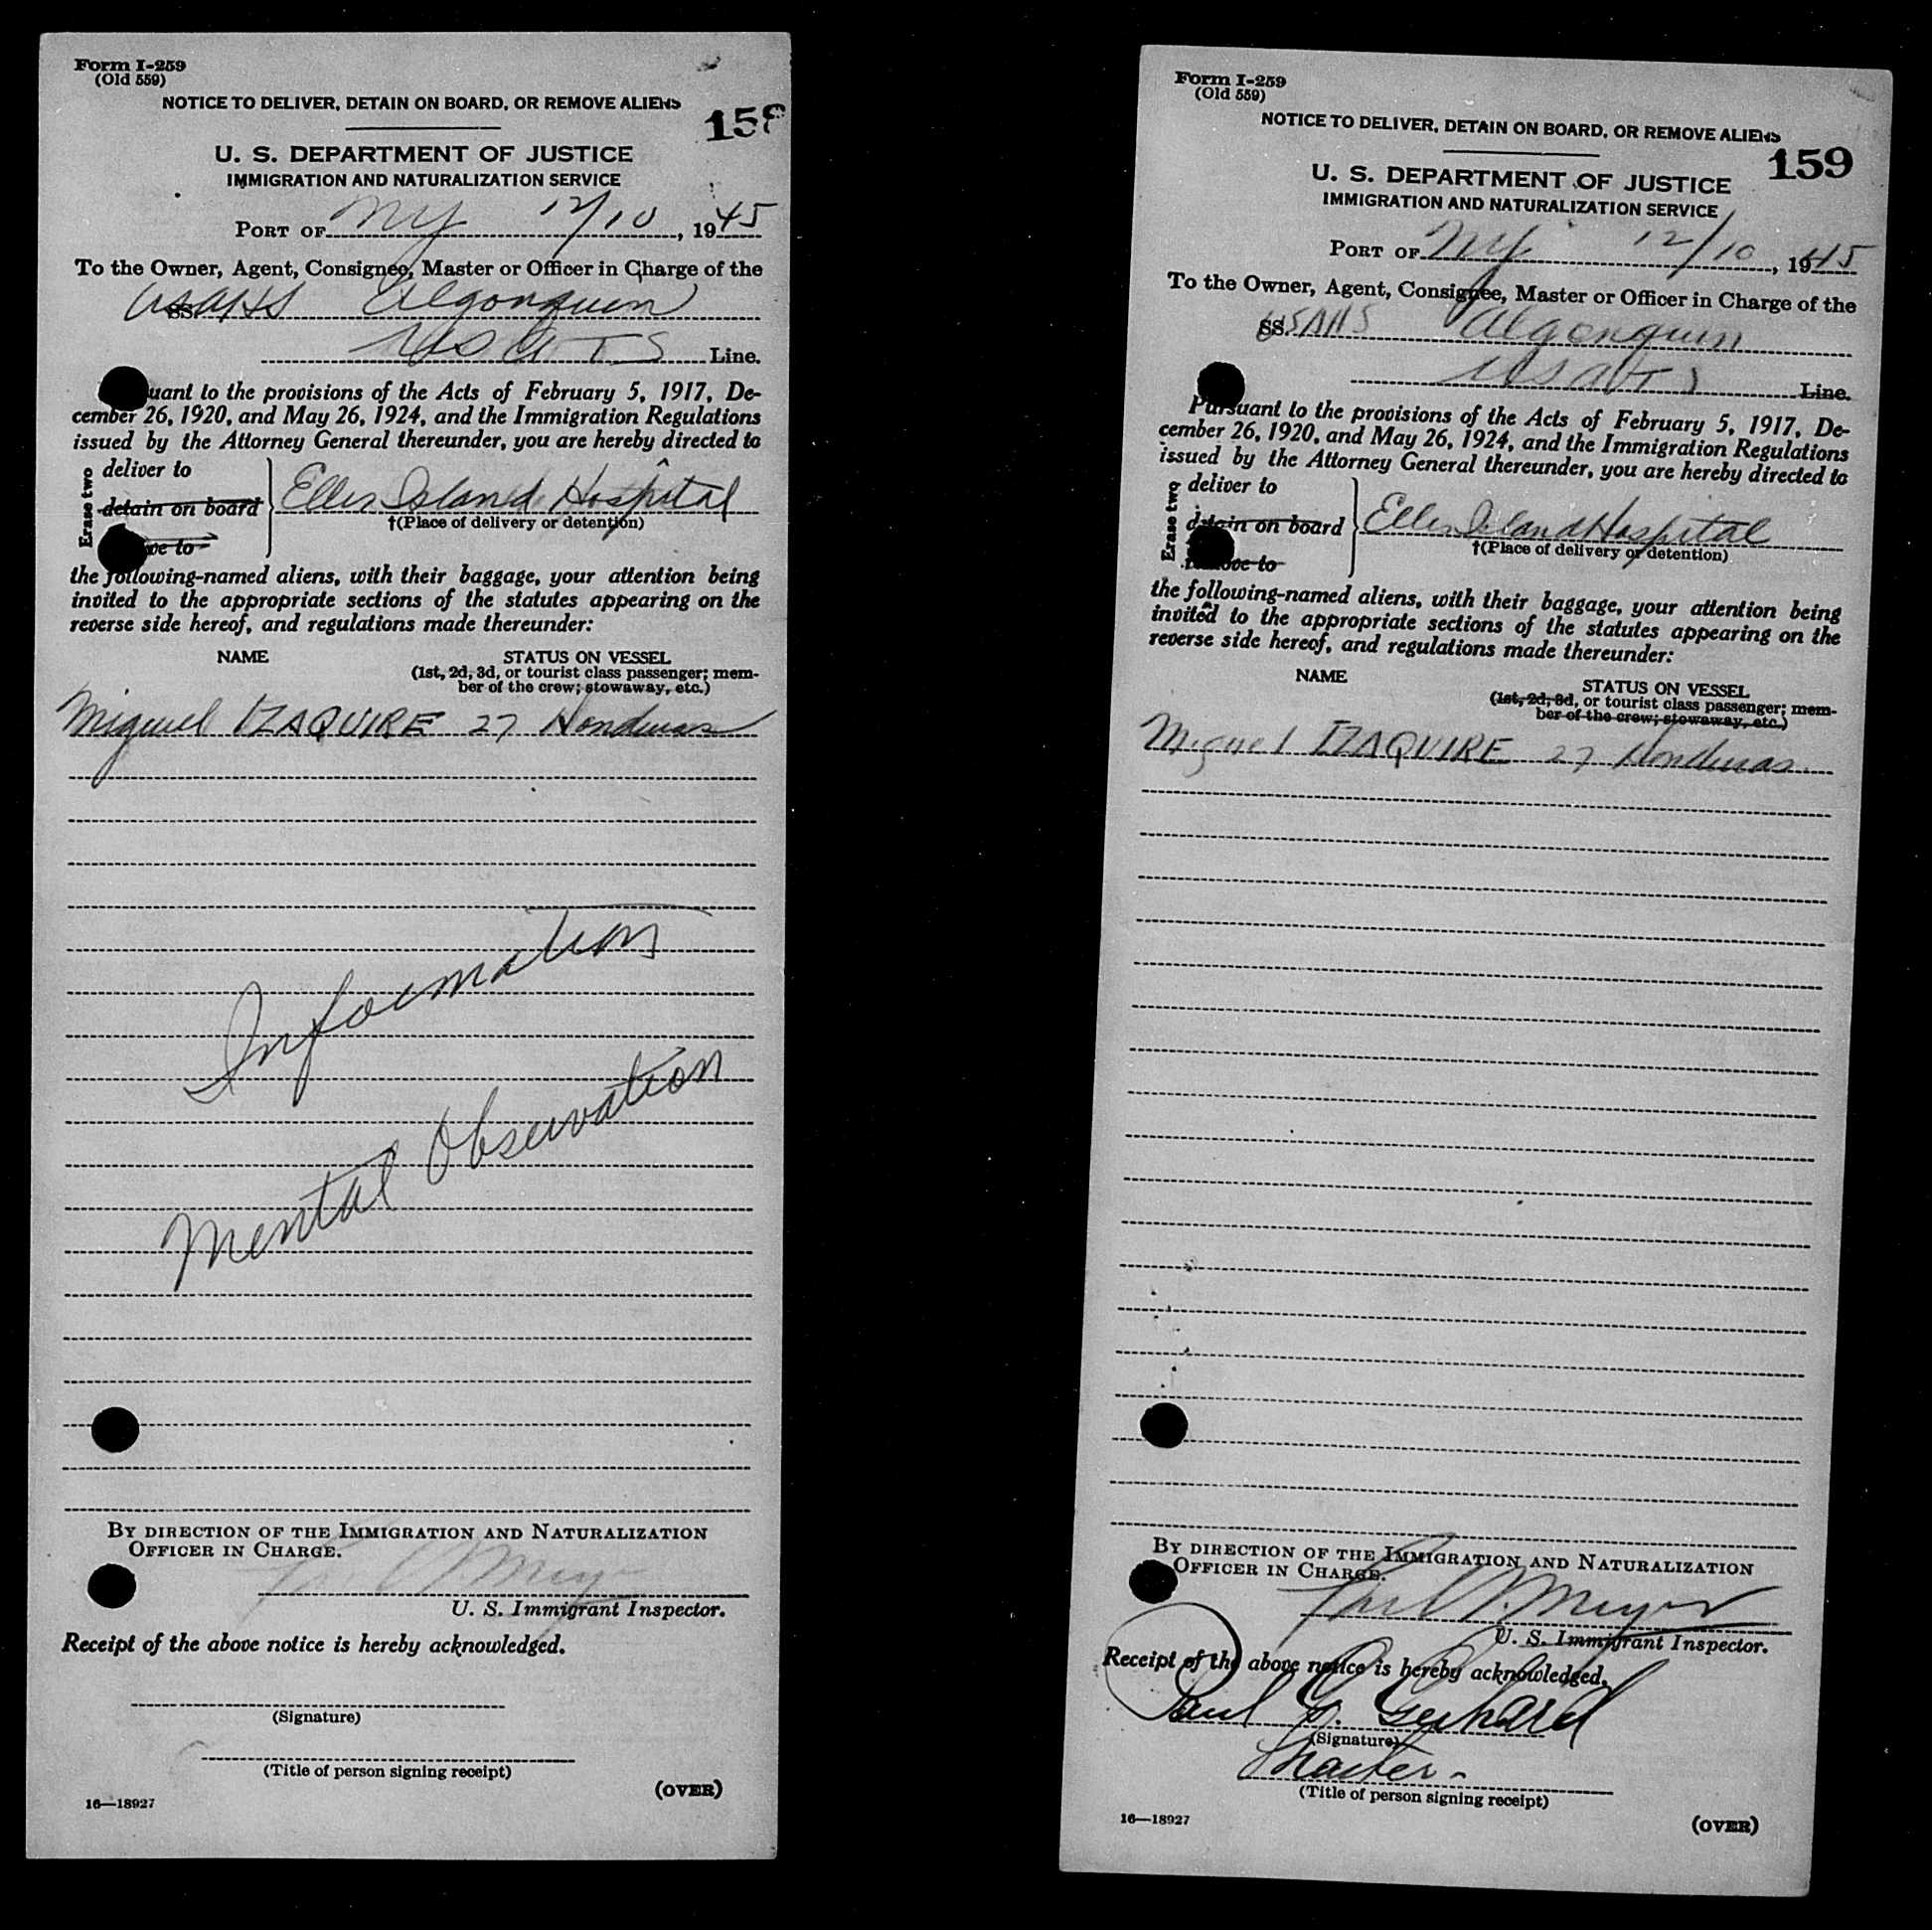 Form I-259
(Old 559)
NOTICE TO DELIVER, DETAIN ON BOARD, OR REMOVE ALIENS
158
U. S. DEPARTMENT OF JUSTICE
IMMIGRATION AND NATURALIZATION SERVICE
PORT OF NY 12/10, 1945
To the Owner, Agent, Consignee, Master or Officer in Charge of the
SS USAHS Algonquin
USATS Line.
uant to the provisions of the Acts of February 5, 1917, De-
cember 26, 1920, and May 26, 1924, and the Immigration Regulations
issued by the Attorney General thereunder, you are hereby directed to
Erase two
deliver to
detain on board
ve to
Ellis Island Hospital
†(Place of delivery or detention)
the following-named aliens, with their baggage, your attention being
invited to the appropriate sections of the statutes appearing on the
reverse side hereof, and regulations made thereunder:
NAME STATUS ON VESSEL
(1st, 2d, 3d, or tourist class passenger; mem-
ber of the crew; stowaway, etc.)
Miguel IZAQUIRE 27 Honduras
Information
Mental Observation
BY DIRECTION OF THE IMMIGRATION AND NATURALIZATION
OFFICER IN CHARGE.
U. S. Immigrant Inspector.
Receipt of the above notice is hereby acknowledged.
(Signature)
(Title of person signing receipt)
(OVER)
16—18927
Form I-259
(Old 559)
NOTICE TO DELIVER, DETAIN ON BOARD, OR REMOVE ALIENS
159
U. S. DEPARTMENT OF JUSTICE
IMMIGRATION AND NATURALIZATION SERVICE
PORT OF NY 12/10, 1945
To the Owner, Agent, Consignee, Master or Officer in Charge of the
SS. USAHS Algonquin
USATS Line.
Pursuant to the provisions of the Acts of February 5, 1917, De-
cember 26, 1920, and May 26, 1924, and the Immigration Regulations
issued by the Attorney General thereunder, you are hereby directed to
Erase two
deliver to
detain on board
remove to
Ellis Island Hospital
†(Place of delivery or detention)
the following-named aliens, with their baggage, your attention being
invited to the appropriate sections of the statutes appearing on the
reverse side hereof, and regulations made thereunder:
NAME STATUS ON VESSEL
(1st, 2d, 3d, or tourist class passenger; mem-
ber of the crew; stowaway, etc.)
Miguel IZAQUIRE 27 Honduras
BY DIRECTION OF THE IMMIGRATION AND NATURALIZATION
OFFICER IN CHARGE.
Meyer
U. S. Immigrant Inspector.
Receipt of the above notice is hereby acknowledged.
Paul G. Gerhard
(Signature)
Master
(Title of person signing receipt)
16—18927
(OVER)